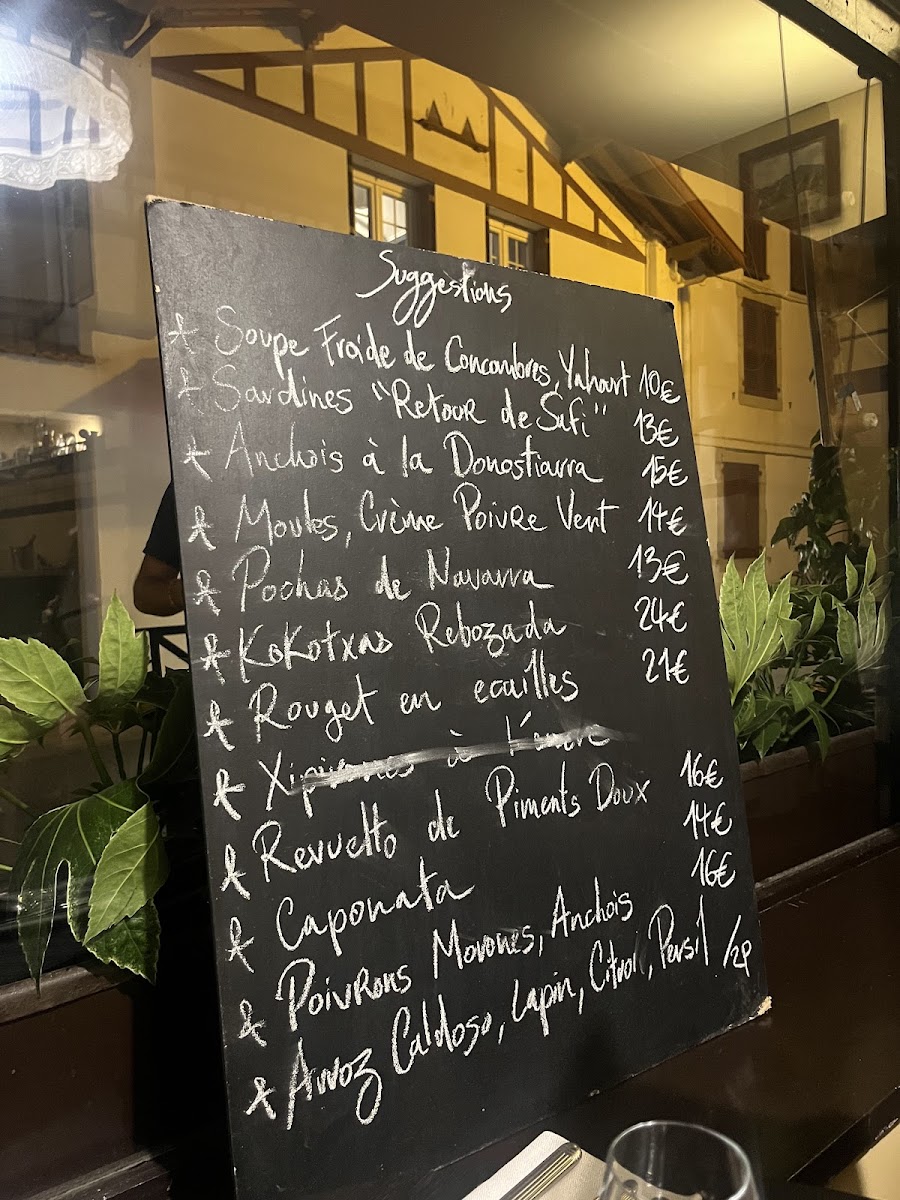 Suggestions
* Soupe Froide de Concombres, Yahourt 10€
* Sardines "Retour de Safi" 13€
* Anchois à la Donostiarra 15€
* Moules, Crème Poivre Vert 14€
* Pochas de Navarra 13€
* Kokotxas Rebozada 24€
* Rouget en ecailles 21€
* Xipirones à l'encre
* Revuelto de Piments Doux 16€
* Caponata 14€
* Poivrons Morones, Anchois 16€
* Arroz Caldoso, Lapin, Citron, Persil /2P